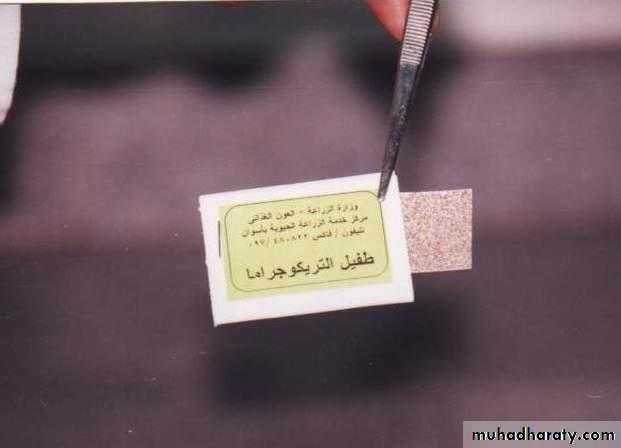 وزارة الزراعة - العون الغذائي
مركز خدمة الزراعة الحيوية بأسوان
تليفون / فاكس ٤٨٠٨٢٢ /٠٩٧
طفيل التريكوجراما
muhadharaty.com